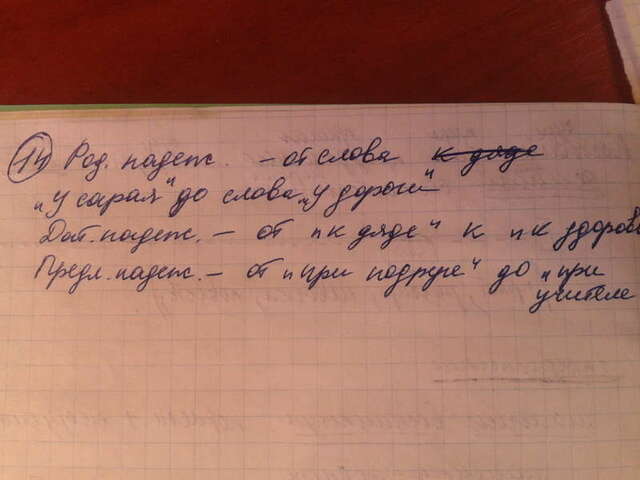 14 Род. падеж. – от слова к дяде
„у сарая" до слова „у дороги"
Дат. падеж. – от „к дяде" к „к здоровь
Предл. падеж. – от „при подруге" до „при
учителе